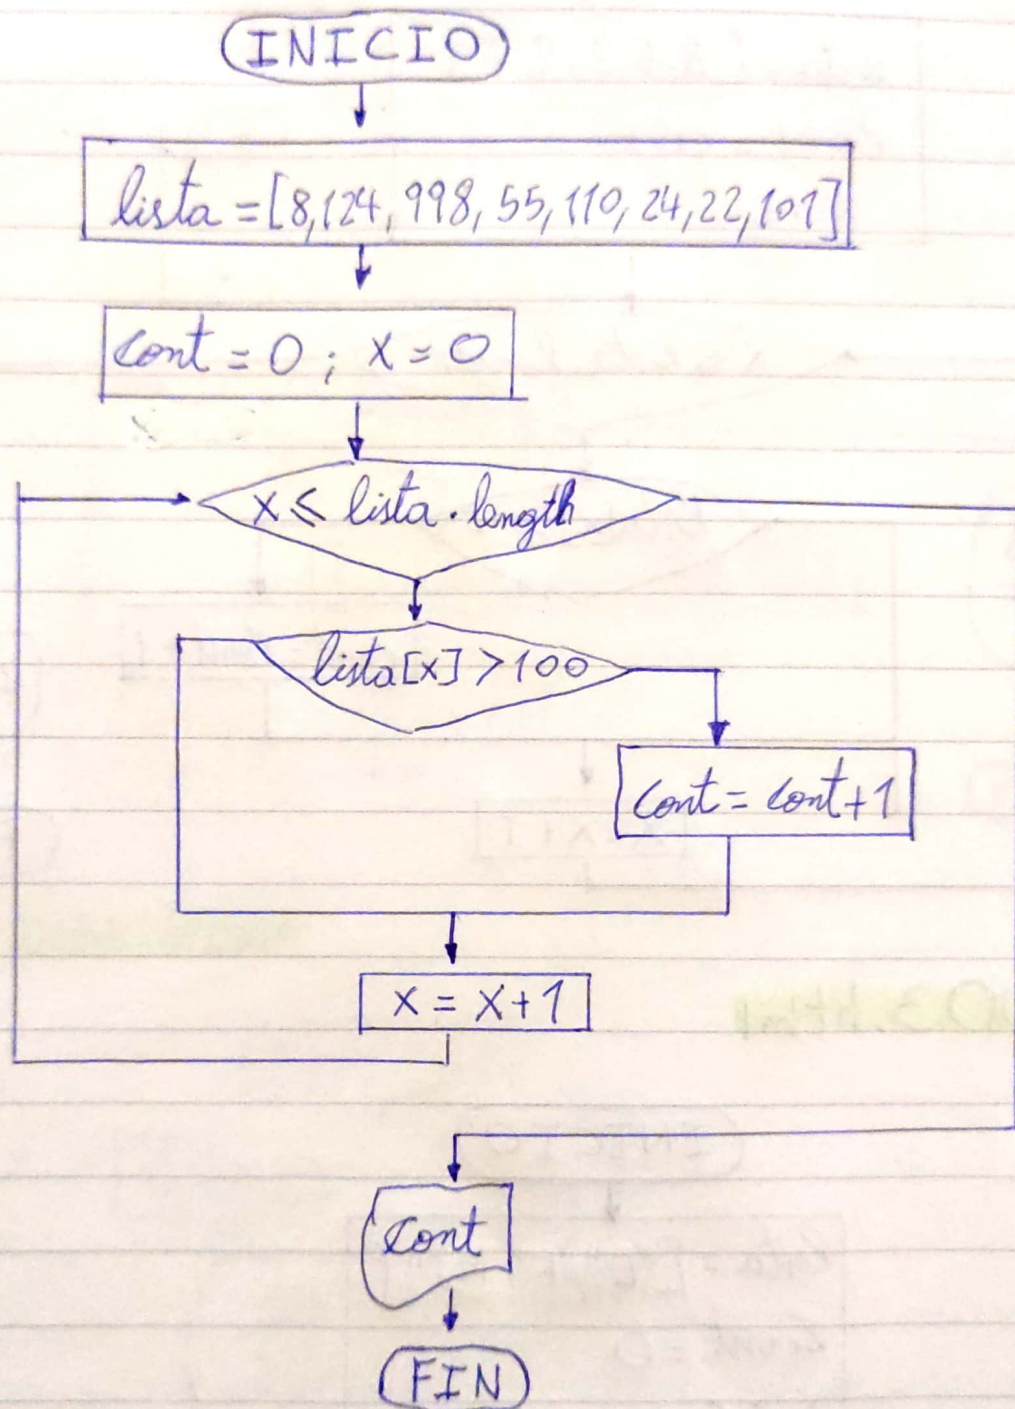 INICIO
lista = [8, 124, 998, 55, 110, 24, 22, 101]
cont = 0 ; x = 0
x ≤ lista . length
lista[x] > 100
cont = cont + 1
x = x + 1
cont
FIN